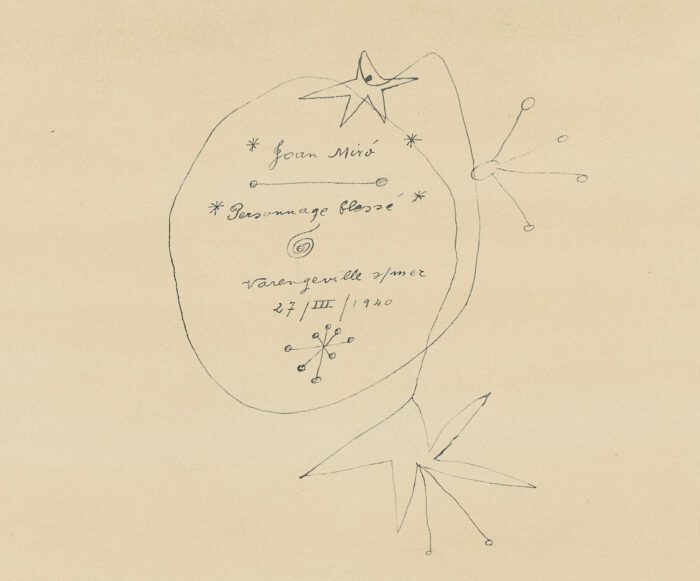 * Joan Miró *
* Personnage blessé *
Varengeville s/mer
27/III/1940